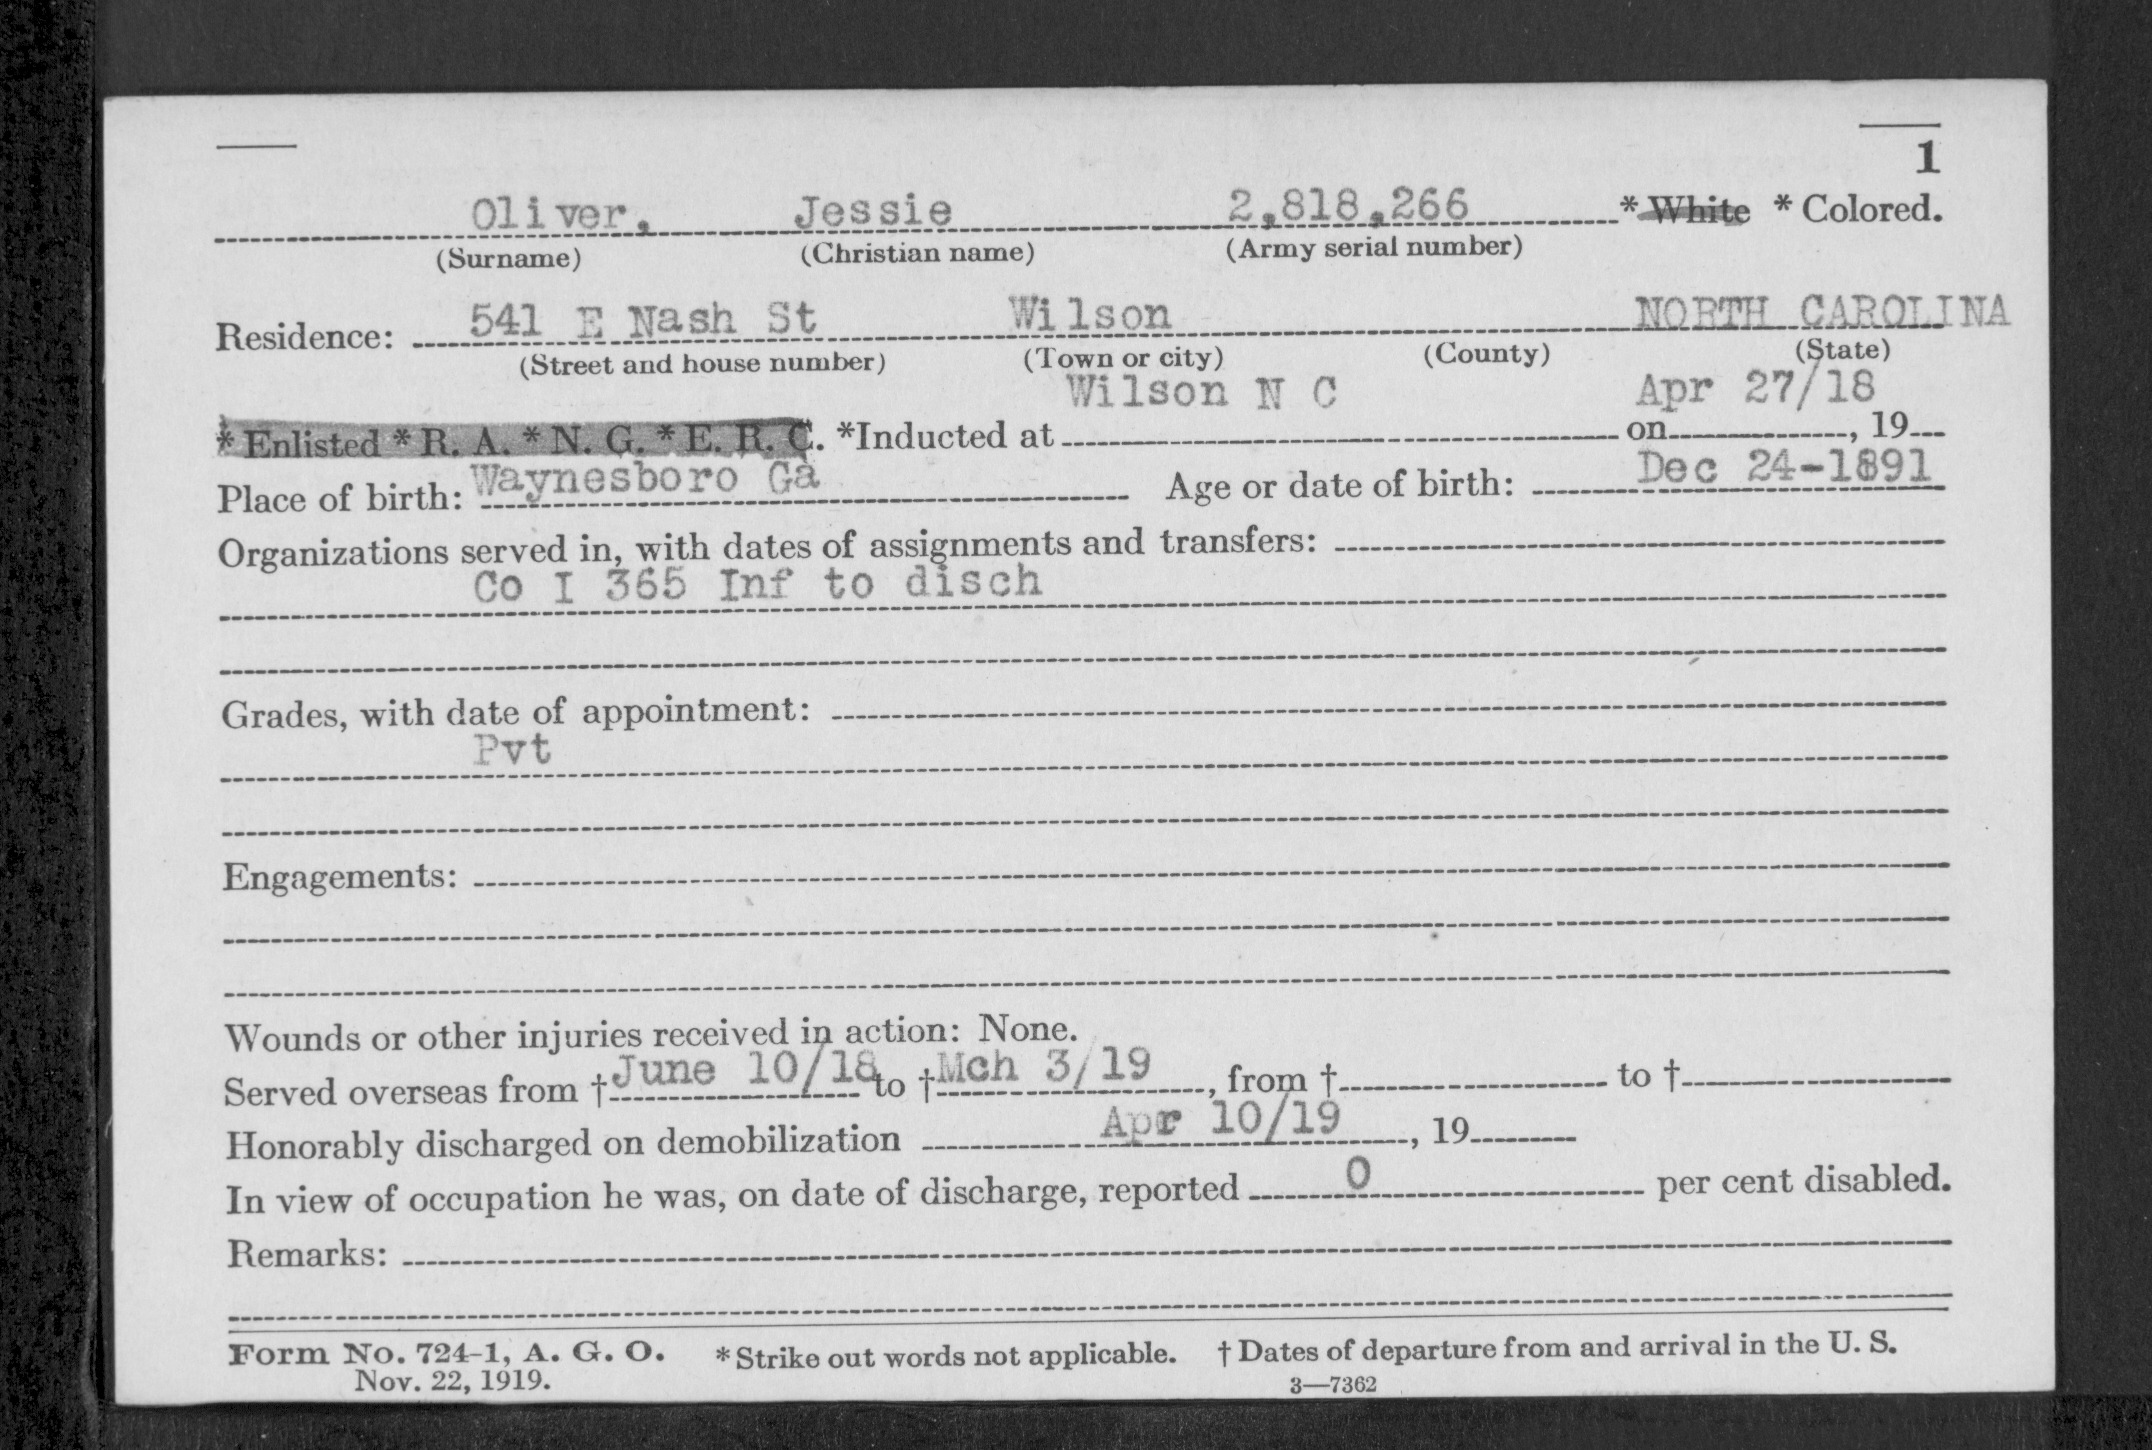 1
Oliver, Jessie 2,818,266 * White * Colored.
(Surname) (Christian name) (Army serial number)
Residence: 541 E Nash St Wilson NORTH CAROLINA
(Street and house number) (Town or city) (County) (State)
Wilson N C Apr 27/18
* Enlisted * R. A. * N. G. * E. R. C. *Inducted at on , 19
Place of birth: Waynesboro Ga Age or date of birth: Dec 24-1891
Organizations served in, with dates of assignments and transfers:
Co I 365 Inf to disch
Grades, with date of appointment:
Pvt
Engagements:
Wounds or other injuries received in action: None.
Served overseas from † June 10/18 to † Mch 3/19, from † to †
Honorably discharged on demobilization Apr 10/19, 19
In view of occupation he was, on date of discharge, reported 0 per cent disabled.
Remarks:
Form No. 724-1, A. G. O. * Strike out words not applicable. † Dates of departure from and arrival in the U. S.
Nov. 22, 1919. 3—7362